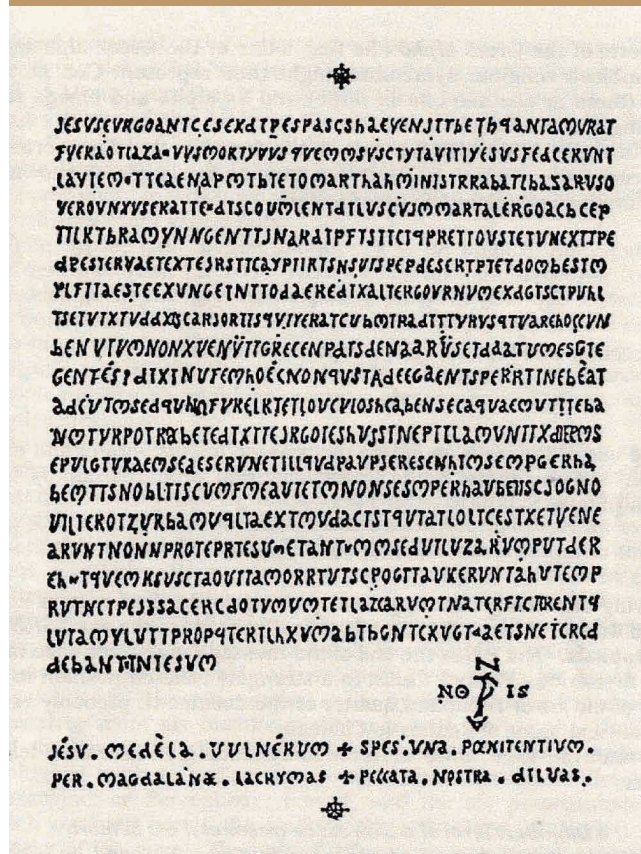 JESVSEVRGOANTCESEXATPESPASCShAEVENJTTBEThQANTAMVRAT
FVERAOTIAZA•VVSMORTVVVSQVEMMSVSCTYTAVITIYESVSFEDCERVNT
LAVIEM•TTCAENAPMTbTETOMARThAhMINISTRRAbATLbAZARVSO
VEROVNXVSERATTE•DTSCOUMLENTATLVSCVJMMARTALERGOACbCEP
TTLKTbRAMYNNGENTTJNARdTPFTSTTCIQPRETTOVSTETVNEXTTPE
dPESTERVAETEXTEJRSTTCAYPIIRTSNSVISPEPdESERTPTETdOMbESTM
PLFITAESTEEXVNGEINTTOdAEREdIXALTERGOVRNVMEXdGTSCTPVhL
TSETVIXTVddXJSCARJORTISQVIYERATCVbMTRAdTTTVRVSQTVAREhOCCVN
bENVTVMNONXVENVÏTGRECENPATSdENAARVSETdAATVMESGTE
GENTÉS?dIXINUFEMhOÉCNONQVSTAdEEGAENTSPERRTINEbÈAT
AdCVTMSEdQVhNFVRELRTETLOVCVIOShCAbENSECAQVAEMVTTTEbA
NMTVRPOTRAbETEdTXTTEJRGOIEShVJSTNEPTILLAMVNTTXdIEPMS
EPVLGTVRAEMSEAESERVNETILLIQVdPAVPSERESENhTMSEMPGERhA
bEMTTSNObLTISCVMFMEAVIETMNONSESMPERhAVbENSCJOGNO
VILTEROTZVRbAMVQLTAEXTMVdACTSTQVTATLOLTCESTXETVENE
ARVNTNONNPROTEPRTESU•ETANT•MMSEdVTLVZARVMPVTdER
Eh•TQVEMKSVSCTAOVTTAMORRTVTSCPOGTTAVKERVNTAhVTEMP
RVTNCTPEJSSACERCdOTVMVMTETLAZCARVMTNATCRFTCTRRENTQ
LVTAMYLVTTPROPQTERTLhXVMAbTbGNTCXVGTdAETSNETCRCd
dEbANTTNTESVM
NO IS
JÉSV. MEdÈLA. VVLNÉRVM + SPES. VNA. PŒNITENTIVM.
PER. MAGdALANÆ. LACRYMAS + PECCATA. NOSTRA. dILVAS.